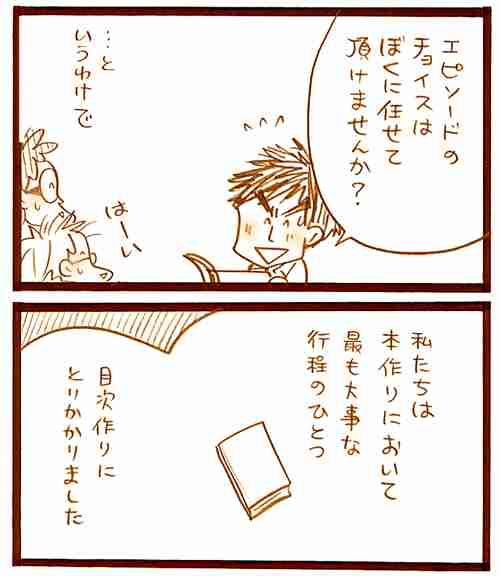 エピソードの
チョイスは
ぼくに任せて
頂けませんか？
…と
いうわけで
はーい
私たちは
本作りにおいて
最も大事な
行程のひとつ
目次作りに
とりかかりました